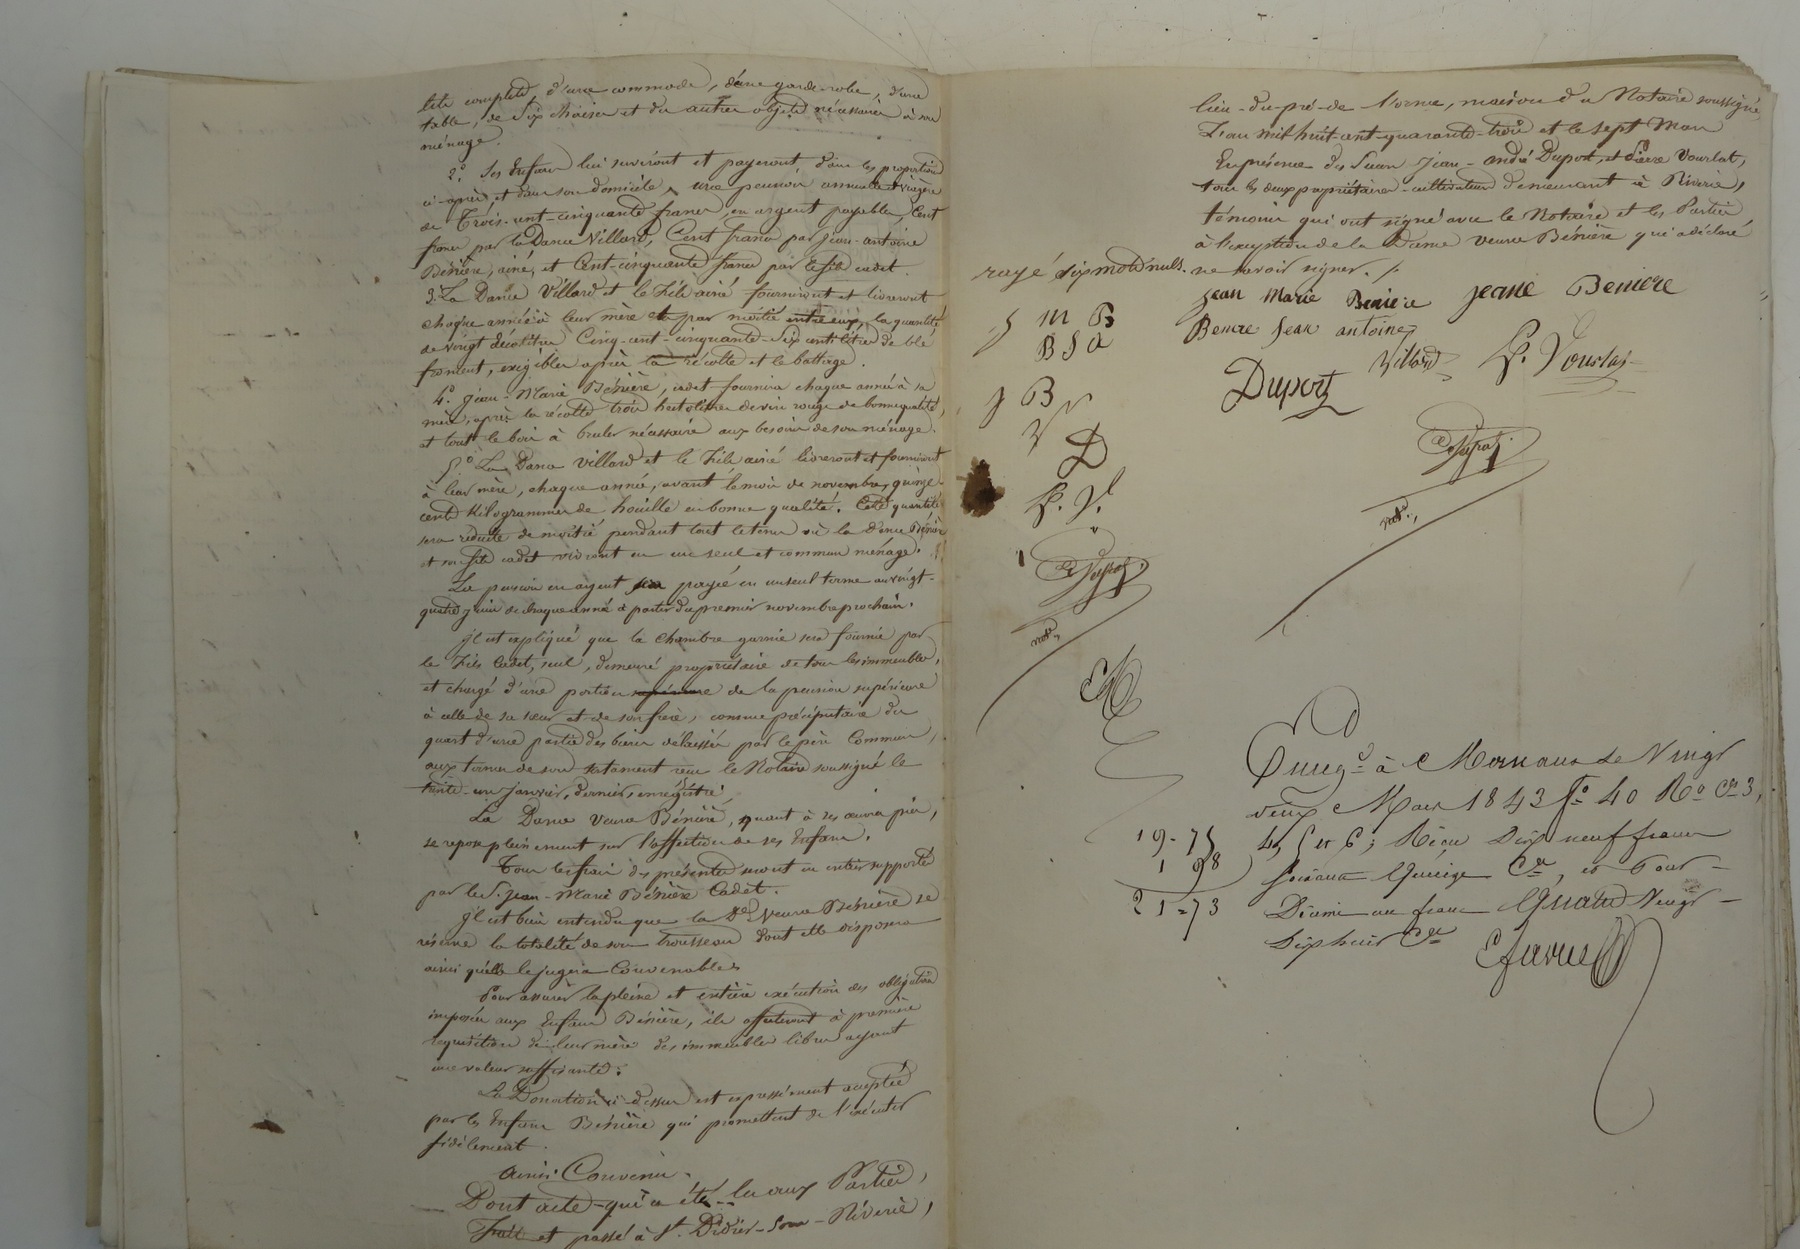 lits complets, d'une commode, d'une garde-robe, d'une
table, de six chaises et des autres objets nécessaires à son
ménage.
2.° Ses Enfans lui serviront et payeront dans les proportions
ci-après, et dans son domicile, une pension annuelle et viagère
de Trois-cent-cinquante francs, en argent payables, Cent
francs par la Dame Villard, Cent francs par Jean-antoine
Bénière, ainé, et Cent-cinquante francs par le fils cadet.
3.° La Dame Villard et le Fils ainé fourniront et livreront
chaque année à leur mère et par moitié entre eux, la quantité
de vingt décalitres Cinq-cent-cinquante-six centilitres de blé
froment, exigibles après la récolte et le battage.
4.° Jean-Marie Bénière, cadet fournira chaque année à sa
mère, après la récolte trois hectolitres de vin rouge de bonne qualité,
et tout le bois à bruler nécessaire aux besoins de son ménage.
5.° La Dame Villard et le Fils ainé livreront et fourniront
à leur mère, chaque année, avant le mois de novembre, quinze
cents kilogrammes de houille en bonne qualité. Cette quantité
sera réduite de moitié pendant tout le tems où la Dame Bénière
et son fils cadet vivront en un seul et commun ménage.
La pension en argent sera payée en un seul terme au vingt-
quatre juin de chaque année à partir du premier novembre prochain.
Il est expliqué que la chambre garnie sera fournie par
le Fils Cadet, seul, demeuré propriétaire de tous les immeubles,
et chargé d'une portion supérieure de la pension supérieure
à celle de sa sœur et de son frère, comme précipuitaire du
quart d'une partie des biens délaissés par le père Commun,
aux termes de son testament reçu le Notaire soussigné le
trente-un janvier, dernier, enregistré.
La Dame Veuve Bénière, quant à ses œuvres pies,
se repose pleinement sur l'affection de ses Enfans.
Tous les frais des présentes seront en entier supportés
par le S.r Jean-Marie Bénière Cadet.
Il est bien entendu que la D.e Veuve Bénière se
réserve la totalité de son trousseau dont elle disposera
ainsi qu'elle le jugera Convenable
Pour assurer la pleine et entière exécution des obligations
imposées aux Enfans Bénière, ils affecteront à première
requisition de leur mère des immeubles libres ayant
une valeur suffisante.
La Donation ci-dessus est expressément acceptée
par les Enfans Bénière qui promettent de l'exécuter
fidèlement.
Ainsi Convenu.
Dont acte-qui a été-lu aux Parties,
Fait et passé à S.t Didier-Sous-Riverie,
lieu-du-pré-de l'orme, maison du Notaire soussigné
L'an mil huit-cent-quarante-trois et le sept Mars
En présence des Sieurs Jean-André Duport, et Pierre Vourlat,
tous les deux propriétaires-cultivateurs demeurant à Riverie,
témoins qui ont signé avec le Notaire et les Parties
à l'exception de la Dame veuve Bénière qui a déclaré
ne savoir signer./.
rayé dix mots nuls.
Jean Marie Beniere Jeane Beniere
J M B
Beniere Jean antoine
B J A
Villard P. Vourlat
Duport
J B
V
D
P. V.
not.re,
not.re,
Enreg.é à Mornant le Vingt
deux Mars 1843 F.o 40 R.o C.es 3,
4, 5 et 6; Reçu Dix neuf francs
Soixante Quinze C.es, et Pour
Décime un franc Quatre Vingt
Dix huit C.es
19-75
1 98
21-73